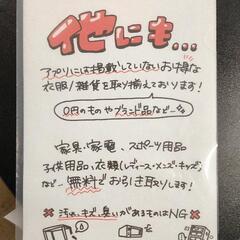 他にも…
アプリには掲載していないお得な
衣服/雑貨を取り揃えております!
0円のものやブランド品など…
家具・家電、スポーツ用品
子供用品、衣類(レディース・メンズ・キッズ)
など… 無料でお引き取りします!
汚れ、キズ、臭いがあるものはNG